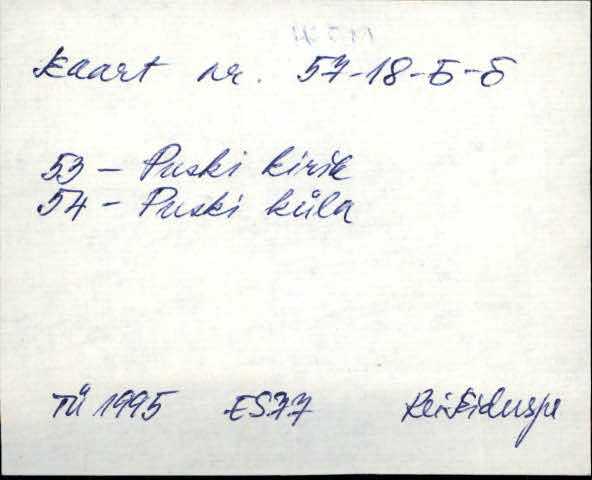 Kaart nr. 57-18-Б-б
53 - Puski kirik
54 - Puski küla
TÜ 1995 ES77